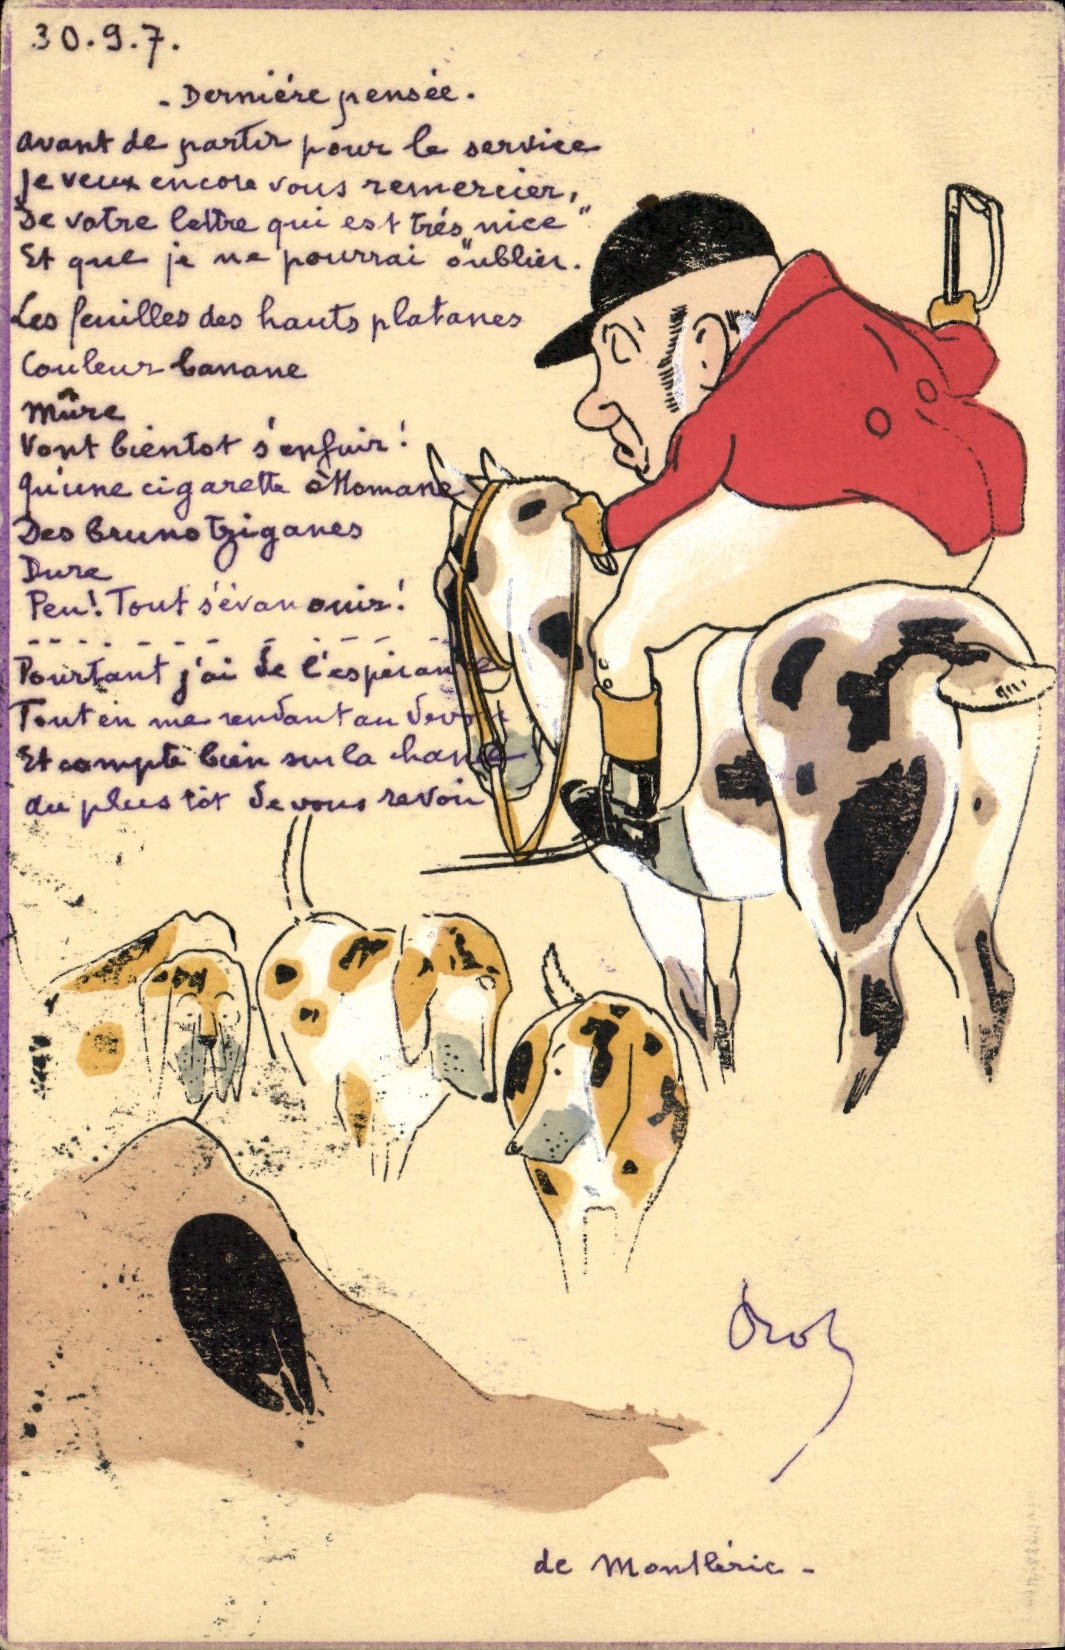 30.9.7.
- Derniére pensée.
Avant de partir pour le service
Je veux encore vous remercier,
De votre lettre qui est "trés nice"
Et que je ne pourrai oublier.
Les feuilles des hauts platanes
Couleur banane
Mûre
Vont bientot s'enfuir!
Qu'une cigarette ottomane
Des bruns tziganes
Dure
Peu! Tout s'évanouir!
Pourtant j'ai de l'espérance
Tout en me rendant au devoir
Et compte bien sur la chance
au plus tôt de vous revoir
de Montléric -